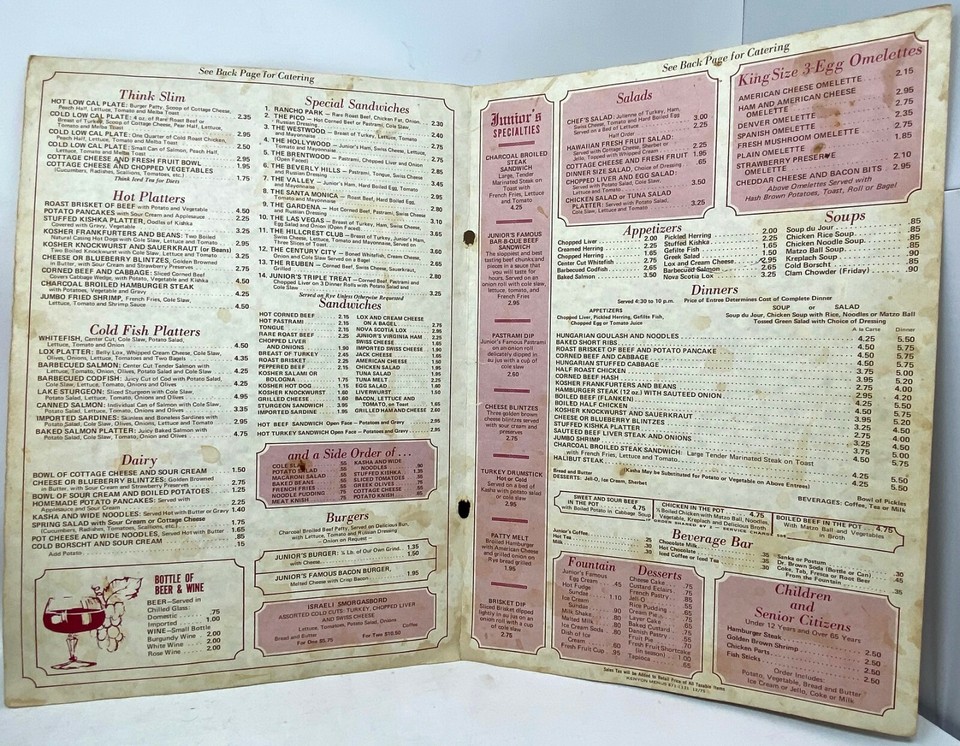 See Back Page for Catering
Think Slim
HOT LOW CAL PLATE: Burger Patty, Scoop of Cottage Cheese,
Peach Half, Lettuce, Tomato and Melba Toast 2.35
COLD LOW CAL PLATE: 4 oz. of Rare Roast Beef or
Breast of Turkey, Scoop of Cottage Cheese, Pear Half, Lettuce,
Tomato and Melba Toast 2.95
COLD LOW CAL PLATE: One Quarter of Cold Broiled Chicken,
Peach Half, Lettuce, Tomato and Melba Toast
COLD LOW CAL PLATE: Small Can of Salmon, Peach Half,
Lettuce, Tomato and Melba Toast 2.50
COTTAGE CHEESE AND FRESH FRUIT BOWL 2.95
COTTAGE CHEESE AND CHOPPED VEGETABLES 1.95
(Cucumbers, Radishes, Scallions, Tomatoes, etc.) 1.75
Think Iced Tea for Diets
Hot Platters
ROAST BRISKET OF BEEF with Potato and Vegetable 4.50
POTATO PANCAKES with Sour Cream and Applesauce 2.25
STUFFED KISHKA PLATTER, Oodles of Kishka
Covered with Gravy, Vegetable
KOSHER FRANKFURTERS AND BEANS: Two Boiled
Natural Casing Hot Dogs with Cole Slaw, Lettuce and Tomato 2.95
KOSHER KNOCKWURST AND SAUERKRAUT (or Beans)
Two Boiled Knockwursts and Cole Slaw, Lettuce and Tomato 3.25
CHEESE OR BLUEBERRY BLINTZES, Golden Browned
in Butter, with Sour Cream and Strawberry Preserves 2.75
CORNED BEEF AND CABBAGE: Sliced Corned Beef
Covers Cabbage Wedge, with Potatoes 4.25
CHARCOAL BROILED HAMBURGER STEAK
with Potatoes, Vegetable and Gravy 4.25
JUMBO FRIED SHRIMP, French Fries, Cole Slaw,
Lettuce, Tomato and Shrimp Sauce 4.50
Cold Fish Platters
WHITEFISH, Center Cut, Cole Slaw, Potato Salad,
Lettuce, Tomato and Onion 4.50
LOX PLATTER: Belly Lox, Whipped Cream Cheese, Cole Slaw,
Olives, Onions, Lettuce, Tomatoes and Two Bagels 4.35
BARBECUED SALMON: Center Cut Tender Salmon with
Lettuce, Tomato, Onion, Olives, Potato Salad and Cole Slaw 4.25
BARBECUED CODFISH: Juicy Cut of Cod with Potato Salad,
Cole Slaw, Lettuce, Tomato, Onions and Olives 4.25
LAKE STURGEON: Sliced Sturgeon with Cole Slaw,
Potato Salad, Lettuce, Tomato, Onions and Olives 4.95
CANNED SALMON: Individual Can of Salmon with Cole Slaw,
Potato Salad, Lettuce, Tomato, Onions and Olives 3.35
IMPORTED SARDINES: Skinless and Boneless Sardines with
Potato Salad, Cole Slaw, Tomato, Onions, Olives, Lettuce and Tomato 2.95
BAKED SALMON PLATTER: Juicy Baked Salmon with
Potato Salad, Cole Slaw, Tomato, Onion and Olives 4.75
Dairy
BOWL OF COTTAGE CHEESE AND SOUR CREAM 1.50
CHEESE OR BLUEBERRY BLINTZES: Golden Browned
in Butter, with Sour Cream and Strawberry Preserves 2.75
BOWL OF SOUR CREAM AND BOILED POTATOES 1.25
HOMEMADE POTATO PANCAKES: Served with
Applesauce and Sour Cream 2.25
KASHA AND WIDE NOODLES, Served Hot with Butter or Gravy 1.40
SPRING SALAD with Sour Cream or Cottage Cheese
(Cucumbers, Radishes, Tomatoes, Scallions, etc.) 1.75
POT CHEESE AND WIDE NOODLES, Served Hot with Butter 1.65
COLD BORSCHT AND SOUR CREAM .85
Add Potato .15
BOTTLE OF
BEER & WINE
BEER—Served in
Chilled Glass:
Domestic .75
Imported 1.00
WINE—Small Bottle
Burgundy Wine 2.00
White Wine 2.00
Rose Wine 2.00
Special Sandwiches
1. RANCHO PARK — Rare Roast Beef, Chicken Fat, Onion 2.30
2. THE PICO — Hot Corned Beef or Pastrami, Cole Slaw,
Russian Dressing 2.40
3. THE WESTWOOD — Breast of Turkey, Lettuce, Tomato
and Mayonnaise
4. THE HOLLYWOOD — Junior's Ham, Swiss Cheese, Lettuce,
Tomato and Mayonnaise
5. THE BRENTWOOD — Pastrami, Chopped Liver and Onion
(Open Faced)
6. THE BEVERLY HILLS — Pastrami, Tongue, Swiss Cheese
and Russian Dressing 2.85
7. THE VALLEY — Junior's Ham, Hard Boiled Egg, Tomato
and Mayonnaise 3.45
8. THE SANTA MONICA — Roast Beef, Hard Boiled Egg,
Tomato and Mayonnaise
9. THE GARDENA — Hot Corned Beef, Pastrami, Swiss Cheese
and Russian Dressing
10. THE LAS VEGAS — Breast of Turkey, Ham, Swiss Cheese,
Egg Salad and Onion (Open Faced) 3.10
11. THE HILLCREST CLUB — Breast of Turkey, Junior's Ham,
Swiss Cheese, Lettuce, Tomato and Mayonnaise, Served on
Three Slices of Toast
12. THE CENTURY CITY — Boned Whitefish, Cream Cheese,
Onion and Olive, Cole Slaw, Lettuce and Tomato
13. THE REUBEN — Corned Beef, Swiss Cheese, Sauerkraut,
Grilled 2.65
14. JUNIOR'S TRIPLE TREAT: Corned Beef, Pastrami and
Chopped Liver on 3 Dinner Rolls with Potato Salad and
Cole Slaw 3.25
Served on Rye Unless Otherwise Requested
Sandwiches
HOT CORNED BEEF 2.15
HOT PASTRAMI 2.15
TONGUE 2.15
RARE ROAST BEEF 2.25
CHOPPED LIVER
AND ONIONS 1.90
BREAST OF TURKEY 2.45
ROAST BRISKET 2.25
PEPPERED BEEF 2.15
KOSHER SALAMI OR
BOLOGNA 1.75
KOSHER HOT DOG 1.15
KOSHER KNOCKWURST 1.80
GRILLED CHEESE 1.60
STURGEON SANDWICH 3.95
IMPORTED SARDINE 1.95
LOX AND CREAM CHEESE
ON A BAGEL 2.75
NOVA SCOTIA LOX 2.95
JUNIOR'S VIRGINIA HAM 2.25
SWISS CHEESE 1.85
IMPORTED SWISS CHEESE 1.90
JACK CHEESE 1.85
AMERICAN CHEESE 1.50
CHICKEN SALAD 1.95
TUNA SALAD 1.95
TUNA MELT 2.25
EGG SALAD 1.60
LIVERWURST 1.50
BACON, LETTUCE AND
TOMATO, on Toast 1.65
GRILLED HAM AND CHEESE 2.60
HOT BEEF SANDWICH Open Face — Potatoes and Gravy 2.95
HOT TURKEY SANDWICH Open Face — Potatoes and Gravy 2.95
and a Side Order of...
COLE SLAW .55
POTATO SALAD .55
MACARONI SALAD .55
BAKED BEANS .55
FRENCH FRIES .55
NOODLE PUDDING .75
MEAT KNISH .75
KASHA AND WIDE
NOODLES .90
STUFFED KISHKA 1.35
SLICED TOMATOES .75
GREEK OLIVES .75
COTTAGE CHEESE .75
POTATO KNISH .65
Burgers
Charcoal Broiled Beef Patty, Served on Delicious Bun,
with Lettuce, Tomato and Russian Dressing
— Onion on Request —
JUNIOR'S BURGER: ¼ Lb. of Our Own Grind 1.35
with Cheese 1.50
JUNIOR'S FAMOUS BACON BURGER,
Melted Cheese with Crisp Bacon 1.95
ISRAELI SMORGASBORD
ASSORTED COLD CUTS: TURKEY, CHOPPED LIVER
AND SWISS CHEESE
Lettuce, Tomatoes, Potato Salad, Onions
Bread and Butter Coffee
For One $5.75 For Two $10.50
Junior's
SPECIALTIES
CHARCOAL BROILED
STEAK
SANDWICH
Large, Tender
Marinated
Steak on
Toast with
French Fries,
Lettuce and
Tomato
4.25
JUNIOR'S FAMOUS
BAR-B-QUE BEEF
SANDWICH
The sloppiest and
best tasting
beef chunks and
pieces in a sauce
that you will
taste for
hours. Served on an
onion roll with cole slaw,
lettuce, tomato, and
French Fries
2.95
PASTRAMI DIP
Junior's Famous
Pastrami
on an onion roll
delicately dipped in
au jus with a cup of
cole slaw
2.60
CHEESE BLINTZES
Three golden brown
cheese blintzes served
with sour cream and
preserves
2.75
TURKEY DRUMSTICK
Hot or Cold
Served on a bed of
Kasha with potato
salad or
cole slaw
2.95
PATTY MELT
Broiled Hamburger
with American Cheese
and grilled onion on
Rye bread grilled
1.95
BRISKET DIP
Sliced Brisket dipped
lightly in au jus on an
onions roll with a cup
of cole slaw
2.75
See Back Page for Catering
Salads
CHEF'S SALAD: Julienne of Turkey, Ham,
Swiss Cheese, Tomato and Hard Boiled Egg
Served on a Bed of Lettuce 3.00
Half Order 2.25
HAWAIIAN FRESH FRUIT SALAD:
Served with Cottage Cheese, Sherbet or
Jello, Topped with Whipped Cream
COTTAGE CHEESE AND FRESH FRUIT 1.95
DINNER SIZE SALAD, Choice of Dressing .65
CHOPPED LIVER AND EGG SALAD:
Served with Potato Salad, Cole Slaw,
Lettuce and Tomato 3.50
CHICKEN SALAD or TUNA SALAD
PLATTER: Served with Potato Salad,
Cole Slaw, Lettuce and Tomato 3.25
King Size 3-Egg Omelettes
AMERICAN CHEESE OMELETTE 2.15
HAM AND AMERICAN CHEESE
OMELETTE 2.95
DENVER OMELETTE 2.75
SPANISH OMELETTE 2.35
FRESH MUSHROOM OMELETTE 2.75
PLAIN OMELETTE 1.85
STRAWBERRY PRESERVE
OMELETTE 2.10
CHEDDAR CHEESE AND BACON BITS 2.95
Above Omelettes Served with
Hash Brown Potatoes, Toast, Roll or Bagel
Appetizers
Chopped Liver 2.00
Creamed Herring 2.00
Chopped Herring 1.65
Center Cut Whitefish 2.75
Barbecued Codfish 2.65
Baked Salmon 3.50
Pickled Herring 2.00
Stuffed Kishka 2.25
Gefilte Fish 1.65
Greek Salad 1.50
Lox and Cream Cheese 2.95
Barbecued Salmon 2.65
Nova Scotia Lox 3.25
Soups
Soup du Jour .85
Chicken Rice Soup .85
Chicken Noodle Soup .85
Matzo Ball Soup .85
Kreplach Soup .90
Cold Borscht .85
Clam Chowder (Friday) .90
Dinners
Served 4:30 to 10 p.m. Price of Entree Determines Cost of Complete Dinner
APPETIZERS
Chopped Liver, Pickled Herring, Gefilte Fish,
Chopped Egg or Tomato Juice
SOUP or SALAD
Soup du Jour, Chicken Soup with Rice, Noodles or Matzo Ball
Tossed Green Salad with Choice of Dressing
A la Carte Dinner
HUNGARIAN GOULASH AND NOODLES 4.25 5.50
BAKED SHORT RIBS 4.50 5.75
ROAST BRISKET OF BEEF AND POTATO PANCAKE 4.50 5.75
CORNED BEEF AND CABBAGE
HUNGARIAN STUFFED CABBAGE
HALF ROAST CHICKEN
CORNED BEEF HASH 3.95 5.20
KOSHER FRANKFURTERS AND BEANS
HAMBURGER STEAK (12 oz.) WITH SAUTEED ONION
BOILED BEEF (FLANKEN)
BOILED HALF CHICKEN
KOSHER KNOCKWURST AND SAUERKRAUT
CHEESE OR BLUEBERRY BLINTZES
STUFFED KISHKA PLATTER
SAUTEED BEEF LIVER STEAK AND ONIONS
JUMBO SHRIMP
CHARCOAL BROILED STEAK SANDWICH: Large Tender Marinated Steak on Toast
with French Fries, Lettuce and Tomato
HALIBUT STEAK 4.25 5.50
Kasha May be Substituted for Potato or Vegetable on Above Entrees
Bread and Butter Bowl of Pickles
DESSERTS: Jell-O, Ice Cream, Sherbet BEVERAGES: Coffee, Tea or Milk
SWEET AND SOUR BEEF
IN THE POT 4.75
with Boiled Potato in Cabbage Soup
CHICKEN IN THE POT 4.75
½ Boiled Chicken with Matzo Ball, Noodles,
Vegetable, Kreplach and Delicious Broth
BOILED BEEF IN THE POT 4.75
With Matzo Ball and Vegetables
in Broth
Beverage Bar
Junior's Coffee .30
Hot Tea .30
Milk
Chocolate Milk .35
Hot Chocolate
Iced Coffee or Iced Tea
Sanka or Postum
Dr. Brown Soda (Bottle or Can)
Coke, Tab, Fresca or Root Beer
From the Fountain .35
Fountain
Junior's Famous
Egg Cream .45
Hot Fudge
Sundae
Ice Cream
Sundae
Milk Shake .90
Malted Milk
Ice Cream Soda
Dish of Ice
Cream
Fresh Fruit Cup .95
Desserts
Cheese Cake
Custard Eclairs
French Pastry
Jell-O
Rice Pudding
Cream Pie
Layer Cake
Baked Custard
Danish Pastry
Fruit Pie
Fresh Fruit Shortcake
(in season) 1.00
Tapioca .55
Children
and
Senior Citizens
Under 12 Years and Over 65 Years
Hamburger Steak 2.50
Golden Brown Shrimp 2.50
Chicken Parts 2.50
Fish Sticks 2.50
Order Includes:
Potato, Vegetable, Bread and Butter
Ice Cream or Jello, Coke or Milk
Sales Tax will be Added to Retail Price of All Taxable Items